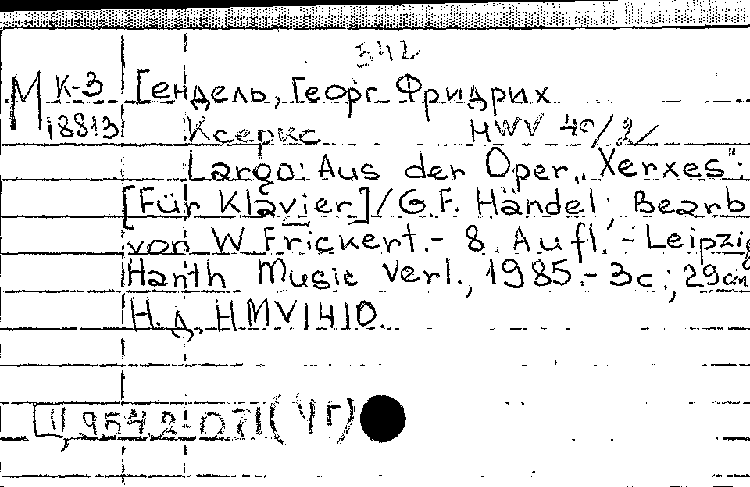 342
М К-3 Гендель, Георг Фридрих
18813 Ксеркс HWV 40/2/
Largo: Aus der Oper „Xerxes":
[Für Klavier] / G.F. Händel; Bearb
von W Frickert. - 8. Aufl. - Leipzig
Hanth Music Verl., 1985. - 3с; 29cm
Н.д. HMV1410.
Ц 954,2-071 (ЧГ)